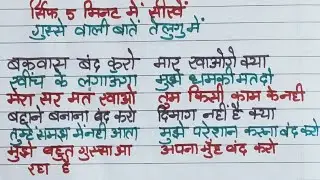 सिर्फ 5 मिनट में सीखें
गुस्से वाली बातें तेलुगु में
बकवास बंद करो मार खाओगे क्या
खींच के लगाऊंगा मुझे धमकी मत दो
मेरा सर मत खाओ तुम किसी काम के नही
बहाने बनाना बंद करो दिमाग नहीं है क्या
तुम्हे समझ में नही आता मुझे परेशान करना बंद करो
मुझे बहुत गुस्सा आ अपना मुँह बंद करो
रहा है